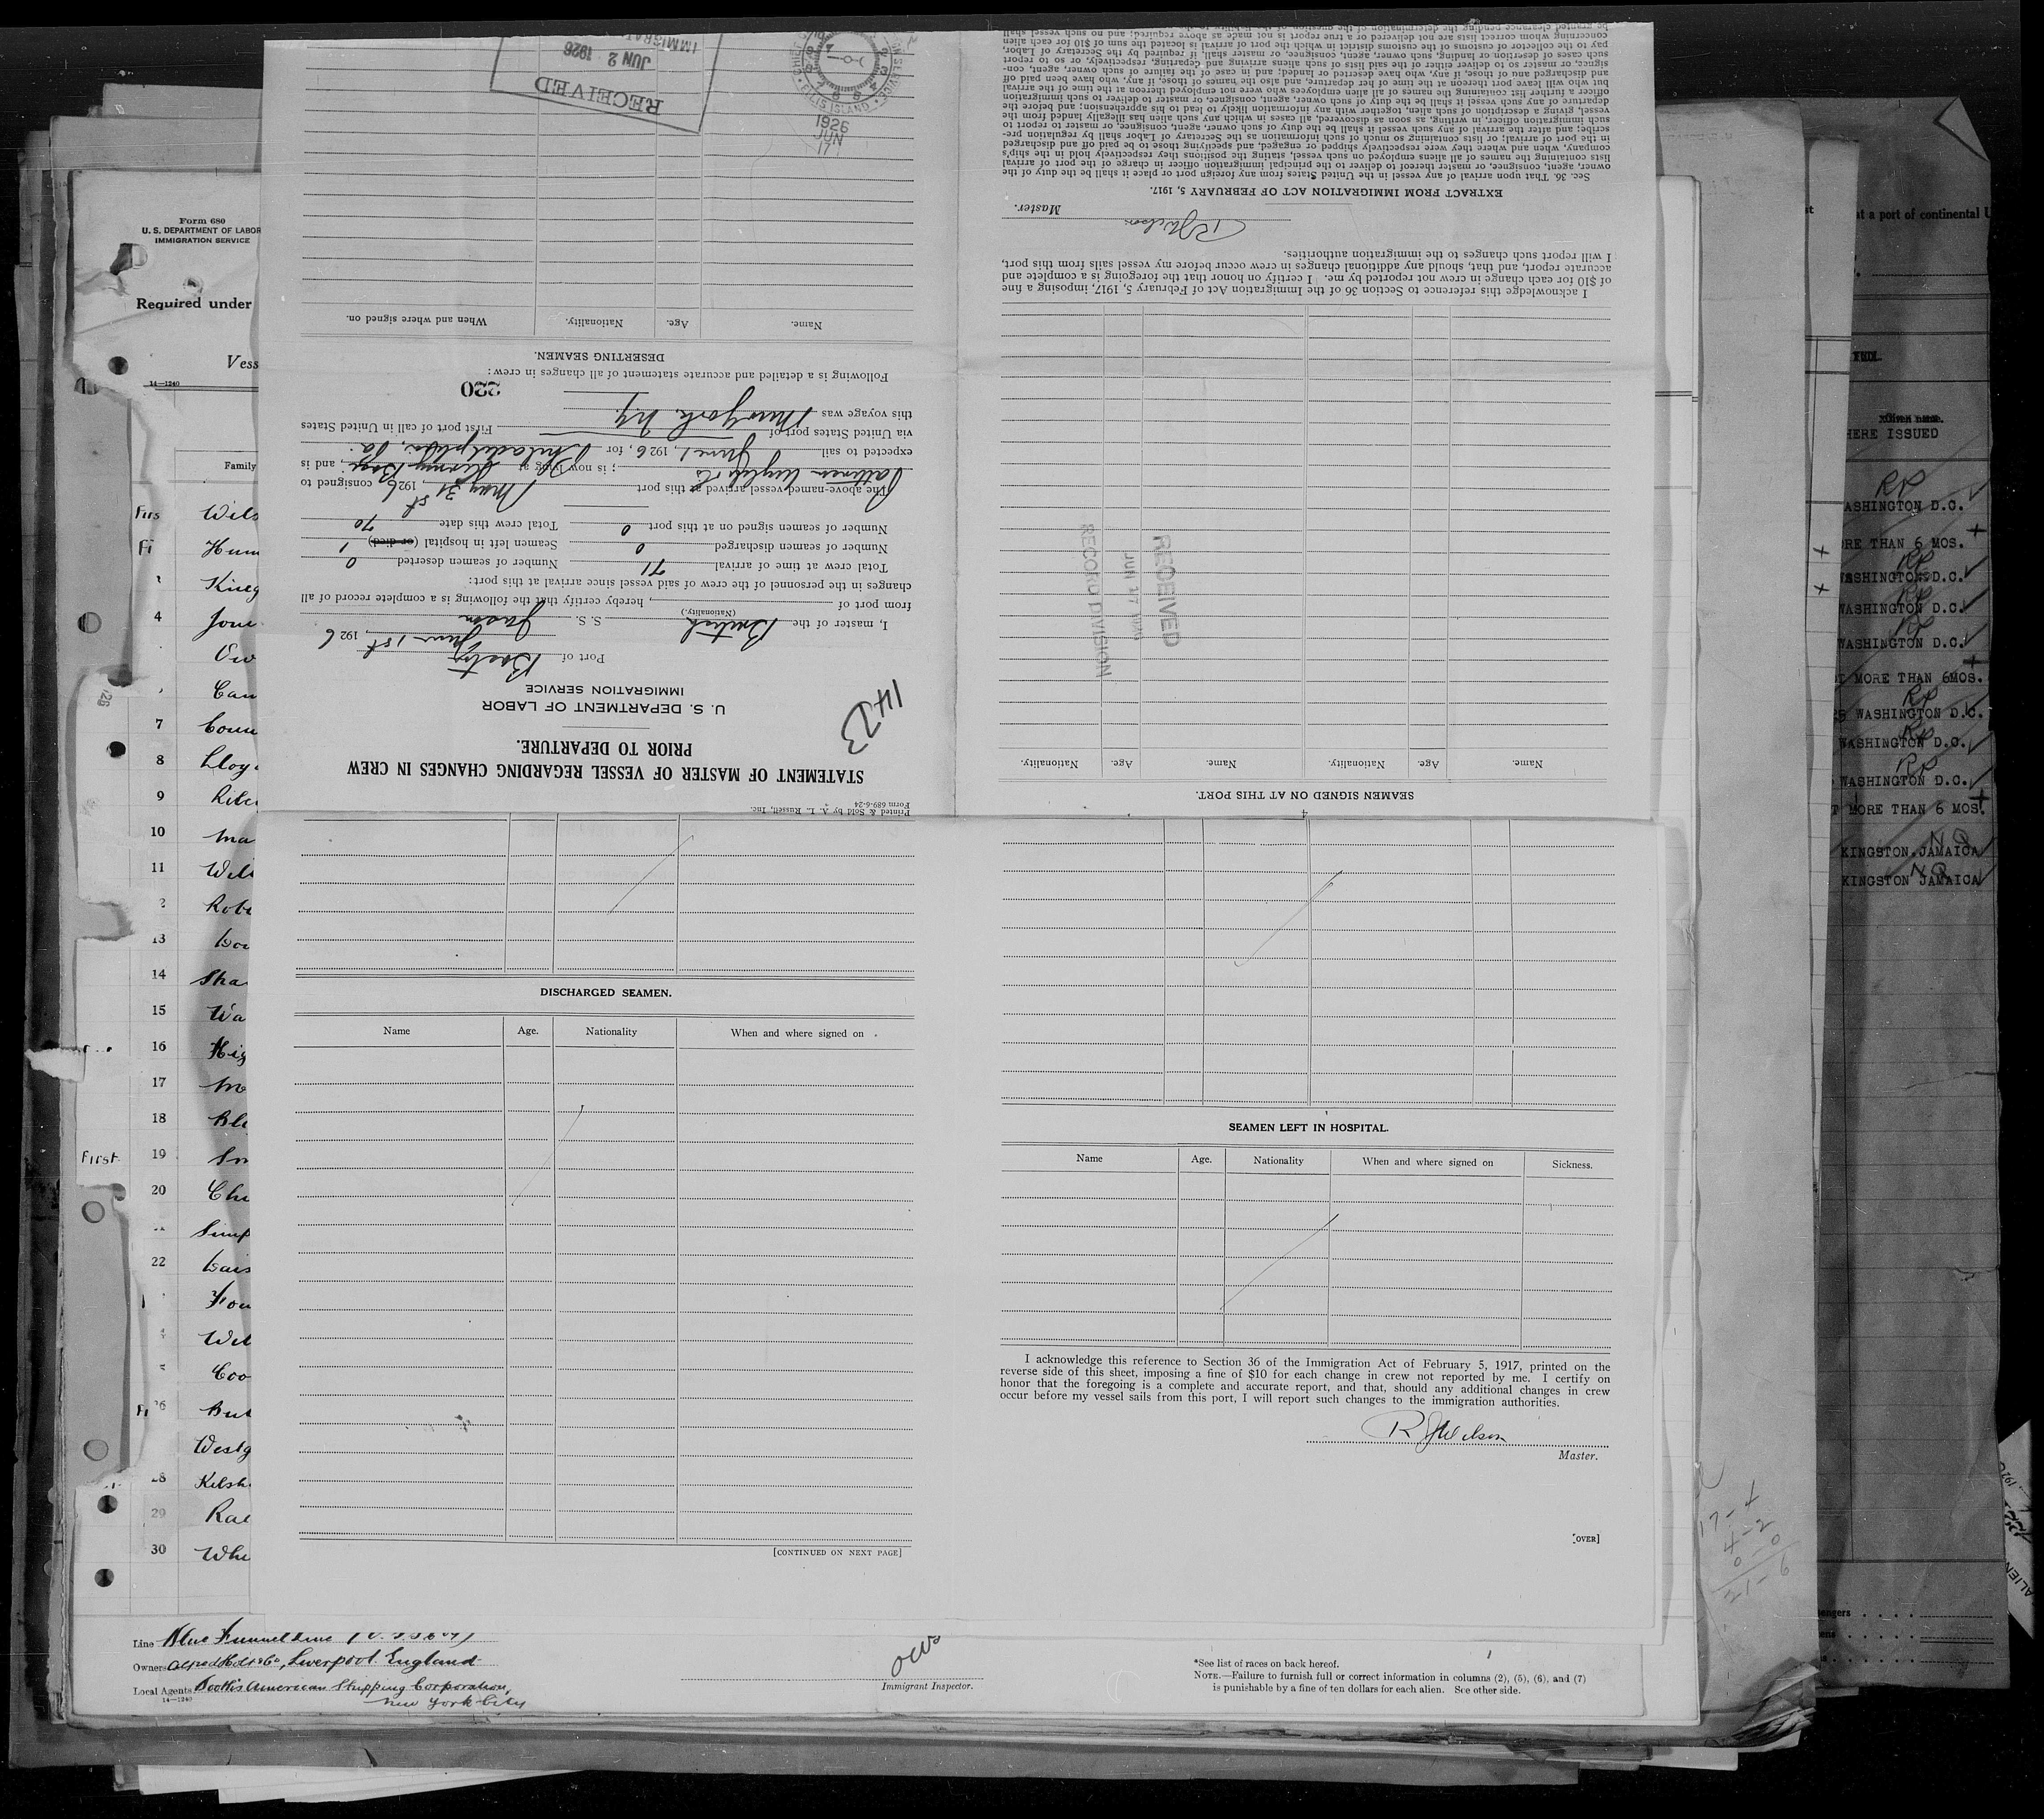 Form 680
U. S. DEPARTMENT OF LABOR
IMMIGRATION SERVICE
Required under
Vess
14—1240
Family
Firs Wils
Fi Hum
King
4 Jone
Ow
Cam
7 Conn
8 Lloy
9 Rile
10 Ma
11 Will
2 Robe
13
14 Sha
15 Wa
16 Hig
17 Mo
18 Bla
First 19 Sm
20 Che
Simp
22 Dais
Fou
Wil
Coo
26 But
Westg
28 Kelsh
29 Rae
30 Whe
Line Blue Funnel Line
Owners Alfred Holt & Co, Liverpool England
Local Agents Booths American Shipping Corporation,
14—1240 New York City
Immigrant Inspector.
*See list of races on back hereof.
NOTE.—Failure to furnish full or correct information in columns (2), (5), (6), and (7)
is punishable by a fine of ten dollars for each alien. See other side.
Printed & Sold by A. L. Russell, Inc.
Form 689-6-24
STATEMENT OF MASTER OF VESSEL REGARDING CHANGES IN CREW
PRIOR TO DEPARTURE.
1423
U. S. DEPARTMENT OF LABOR
IMMIGRATION SERVICE
Port of Boston
June 1st, 1926
I, master of the British S. S. Jason
(Nationality,)
from port of , hereby certify that the following is a complete record of all
changes in the personnel of the crew of said vessel since arrival at this port:
Total crew at time of arrival 71 Number of seamen deserted 0
Number of seamen discharged 0 Seamen left in hospital (or died) 1
Number of seamen signed on at this port 0 Total crew this date 70
The above-named vessel arrived at this port May 31st, 1926 consigned to
Patterson Wylde & Co ; is now lying at , and is
expected to sail June 1, 1926, for Philadelphia, Pa.
via United States port of First port of call in United States
this voyage was New York N.Y.
220
Following is a detailed and accurate statement of all changes in crew:
DESERTING SEAMEN.
Name. Age. Nationality. When and where signed on.
RECEIVED
JUN 2 1926
ELLIS ISLAND
1926
JUN
17
SEAMEN SIGNED ON AT THIS PORT.
Name. Age. Nationality. Name. Age. Nationality.
RECEIVED
JUN 17 1926
RECORD DIVISION
I acknowledge this reference to Section 36 of the Immigration Act of February 5, 1917, imposing a fine
of $10 for each change in crew not reported by me. I certify on honor that the foregoing is a complete and
accurate report, and that, should any additional changes in crew occur before my vessel sails from this port,
I will report such changes to the immigration authorities.
R J Wilson
Master.
EXTRACT FROM IMMIGRATION ACT OF FEBRUARY 5, 1917.
Sec. 36. That upon arrival of any vessel in the United States from any foreign port or place it shall be the duty of the
owner, agent, consignee, or master thereof to deliver to the principal immigration officer in charge of the port of arrival
lists containing the names of all aliens employed on such vessel, stating the positions they respectively hold in the ship's
company, when and where they were respectively shipped or engaged, and specifying those to be paid off and discharged
in the port of arrival; or lists containing so much of such information as the Secretary of Labor shall by regulation pre-
scribe; and after the arrival of any such vessel it shall be the duty of such owner, agent, consignee, or master to report to
such immigration officer, in writing, as soon as discovered, all cases in which any such alien has illegally landed from the
vessel, giving a description of such alien, together with any information likely to lead to his apprehension; and before the
departure of any such vessel it shall be the duty of such owner, agent, consignee, or master to deliver to such immigration
officer a further list containing the names of all alien employees who were not employed thereon at the time of the arrival
but who will leave port thereon at the time of her departure, and also the names of those, if any, who have been paid off
and discharged, and of those, if any, who have deserted or landed; and in case of the failure of such owner, agent, con-
signee, or master so to deliver either of the said lists of such aliens arriving and departing, respectively, or so to report
such cases of desertion or landing, such owner, agent, consignee, or master shall, if required by the Secretary of Labor,
pay to the collector of customs of the customs district in which the port of arrival is located the sum of $10 for each alien
concerning whom correct lists are not delivered or a true report is not made as above required; and no such vessel shall
be granted clearance pending the determination of the question of
DISCHARGED SEAMEN.
Name Age. Nationality When and where signed on .
[CONTINUED ON NEXT PAGE]
SEAMEN LEFT IN HOSPITAL.
Name Age. Nationality When and where signed on Sickness.
I acknowledge this reference to Section 36 of the Immigration Act of February 5, 1917, printed on the
reverse side of this sheet, imposing a fine of $10 for each change in crew not reported by me. I certify on
honor that the foregoing is a complete and accurate report, and that, should any additional changes in crew
occur before my vessel sails from this port, I will report such changes to the immigration authorities.
R J Wilson
Master.
[OVER]
at a port of continental U
HERE ISSUED
WASHINGTON D.C.
RE THAN 6 MOS.
WASHINGTON D.C.
WASHINGTON D.C.
WASHINGTON D.C.
T MORE THAN 6MOS.
WASHINGTON D.C.
WASHINGTON D.C.
WASHINGTON D.C.
T MORE THAN 6 MOS.
KINGSTON.JAMAICA
KINGSTON JAMAICA
17-4
4-2
0-0
21-6
ALIEN